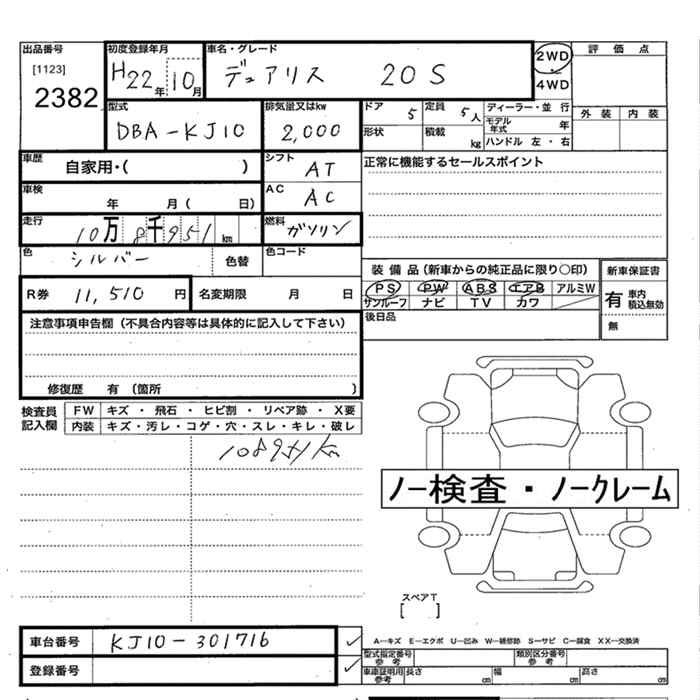 出品番号 初度登録年月 車名・グレード 2WD 評価点
[1123] H22年 10月 デュアリス 20S 4WD
2382
型式 排気量又はkw ドア 定員 ディーラー・並行 外装 内装
DBA-KJ10 2,000 5 5人 モデル年式 年
形状 積載 kg ハンドル 左・右
車歴 自家用・( ) シフト AT 正常に機能するセールスポイント
車検 年 月( 日) AC AC
走行 10万8千951km 燃料 ガソリン
色 シルバー 色替 色コード
装備品(新車からの純正品に限り○印) 新車保証書
R券 11,510円 名変期限 月 日 PS PW ABS エアB アルミW 有 車内積込無効
サンルーフ ナビ TV カワ
後日品 無
注意事項申告欄(不具合内容等は具体的に記入して下さい)
修復歴 有 (箇所 )
検査員記入欄 FW キズ・飛石・ヒビ割・リペア跡・X要
内装 キズ・汚レ・コゲ・穴・スレ・キレ・破レ
108951km
ノー検査・ノークレーム
スペアT
[ ]
車台番号 KJ10-301716 ✓ A―キズ E―エクボ U―凹み W―補修跡 S―サビ C―腐食 XX―交換済
登録番号 ✓ 型式指定番号 参考 類別区分番号 参考
車庫証明用 参考 長さ cm 幅 cm 高さ cm